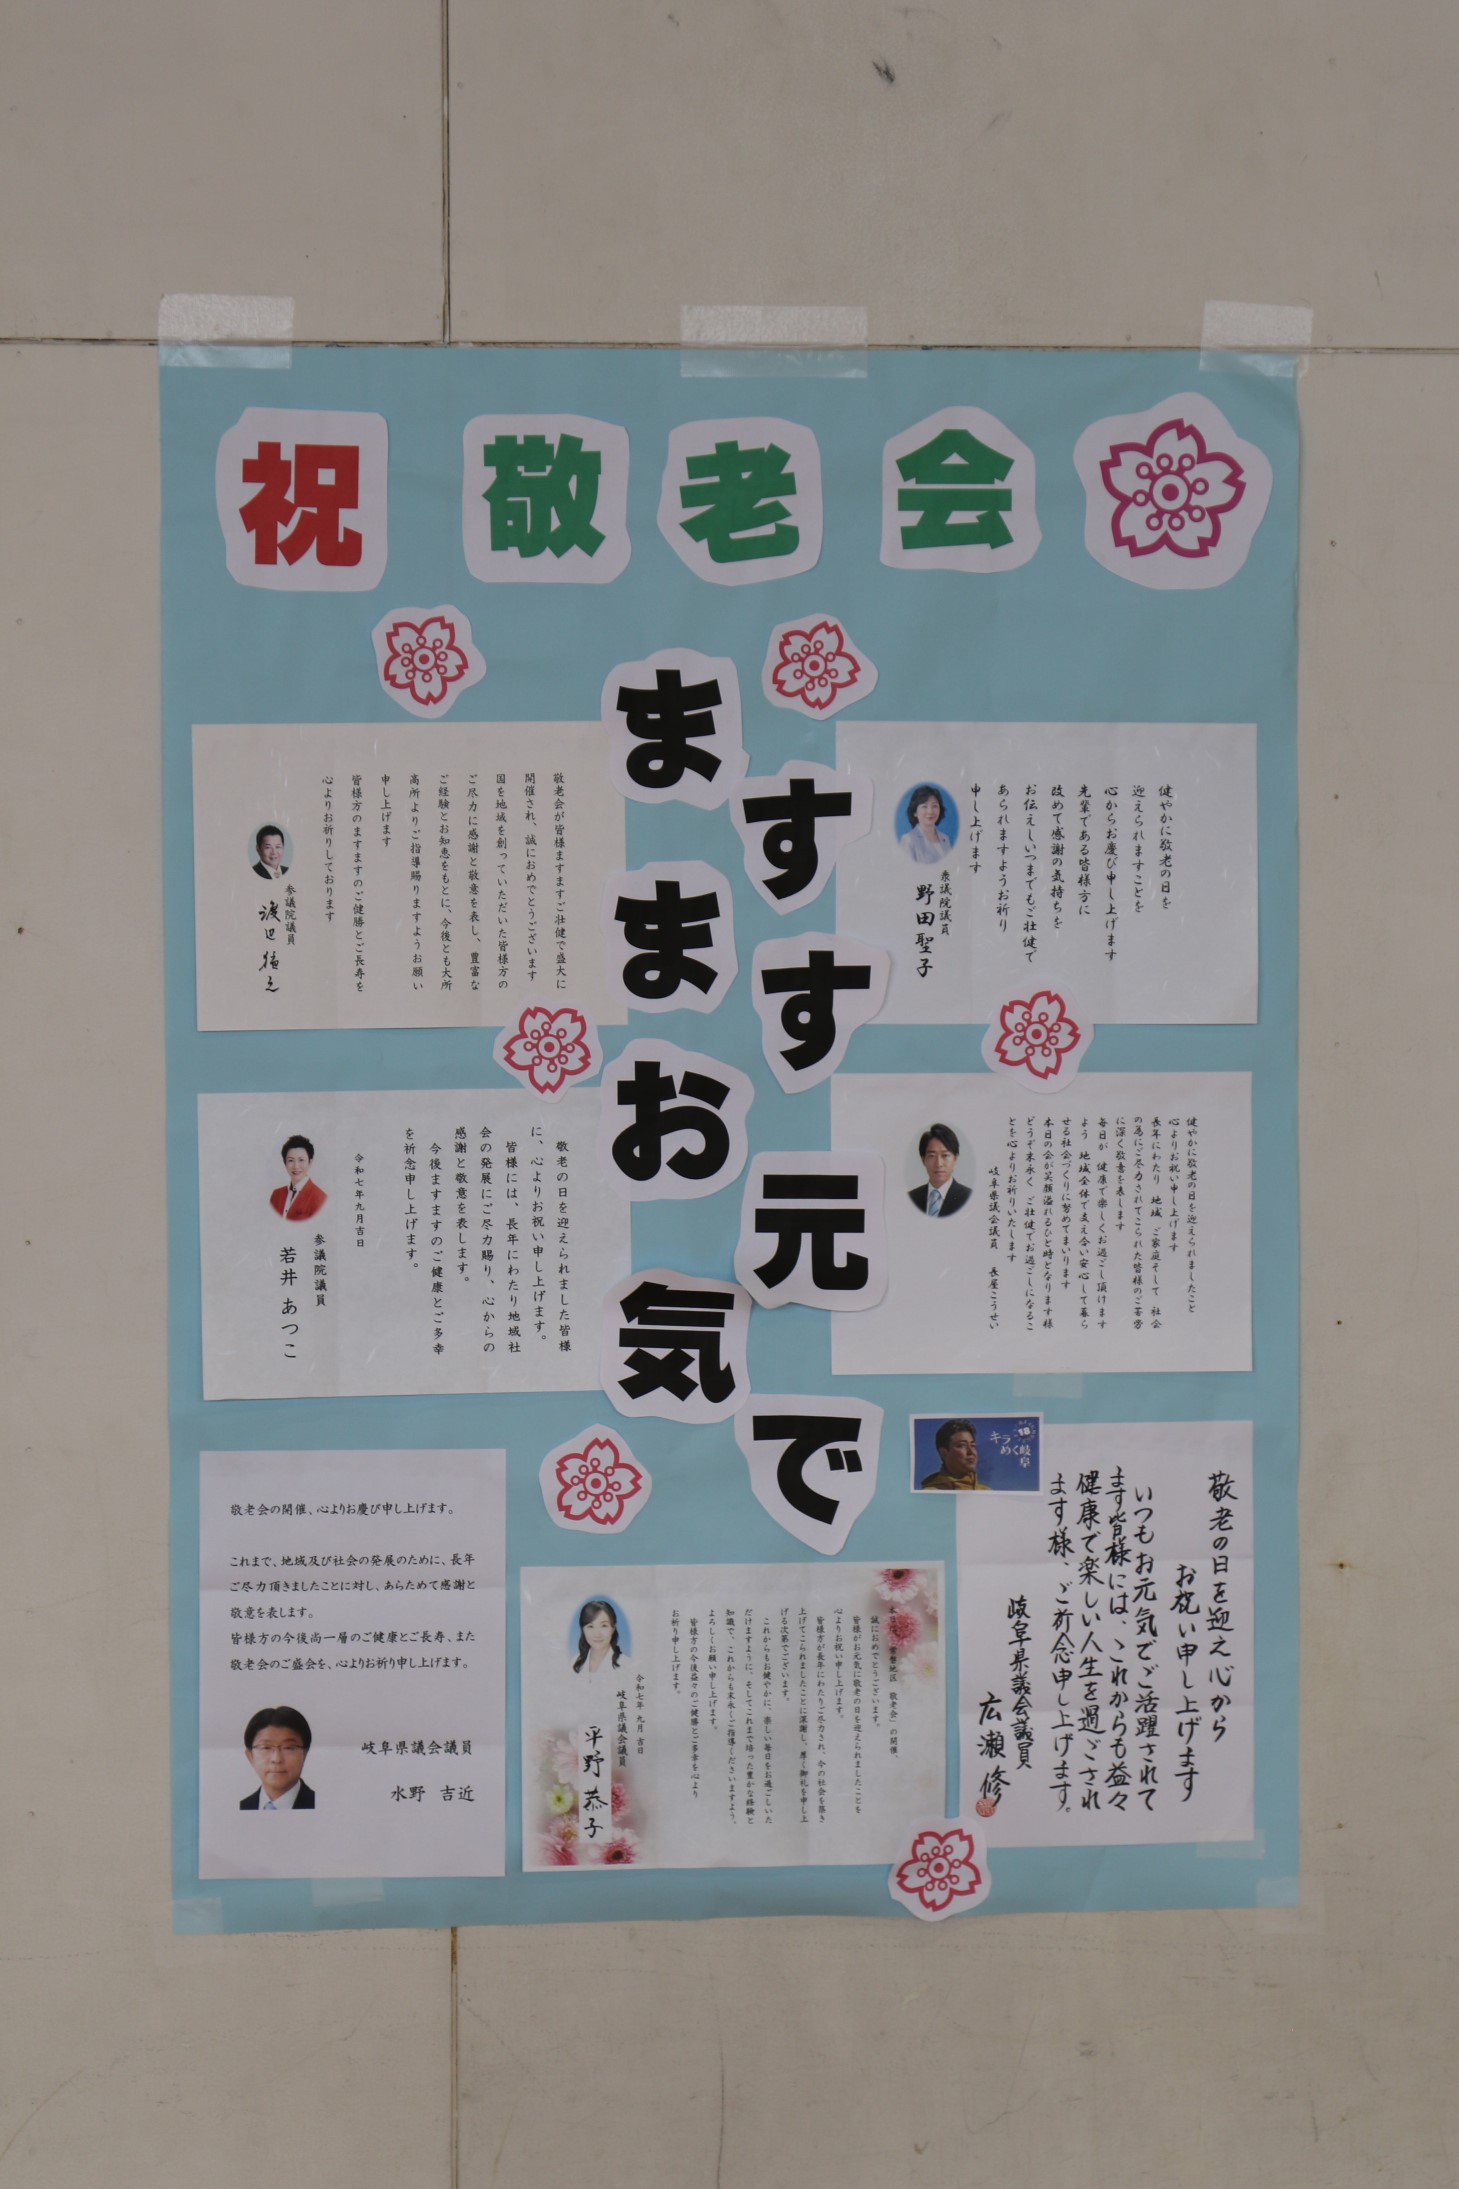 祝敬老会
ますますお元気で
健やかに敬老の日を
迎えられますことを
心からお慶び申し上げます
先輩である皆様方に
改めて感謝の気持ちを
お伝えしいつまでもご壮健で
あられますようお祈り
申し上げます
衆議院議員
野田聖子
敬老会が皆様ますますご壮健で盛大に
開催され、誠におめでとうございます
国を地域を創っていただいた皆様方の
ご尽力に感謝と敬意を表し、豊富な
ご経験とお知恵をもとに、今後とも大所
高所よりご指導賜りますようお願い
申し上げます
皆様方のますますのご健勝とご長寿を
心よりお祈りしております
参議院議員
渡辺猛之
健やかに敬老の日を迎えられましたこと
心よりお祝い申し上げます
長年にわたり 地域 ご家庭そして 社会
の為にご尽力されてこられた皆様のご苦労
に深く敬意を表します
毎日が 健康で楽しくお過ごし頂けます
よう 地域全体で支え合い安心して暮ら
せる社会づくりに努めてまいります
本日の会が笑顔溢れるひと時となります様
どうぞ末永く ご壮健でお過ごしになるこ
とを心よりお祈りいたします
岐阜県議会議員 長屋こうせい
敬老の日を迎えられました皆様
に、心よりお祝い申し上げます。
皆様には、長年にわたり地域社
会の発展にご尽力賜り、心からの
感謝と敬意を表します。
今後ますますのご健康とご多幸
を祈念申し上げます。
令和七年九月吉日
参議院議員
若井あつこ
キラめく岐阜
敬老の日を迎え心から
お祝い申し上げます
いつもお元気でご活躍されて
ます皆様には、これからも益々
健康で楽しい人生を過ごされ
ます様、ご祈念申し上げます。
岐阜県議会議員
広瀬修
敬老会の開催、心よりお慶び申し上げます。
これまで、地域及び社会の発展のために、長年
ご尽力頂きましたことに対し、あらためて感謝と
敬意を表します。
皆様方の今後尚一層のご健康とご長寿、また
敬老会のご盛会を、心よりお祈り申し上げます。
岐阜県議会議員
水野 吉近
地区 敬老会」の開催、
誠におめでとうございます。
皆様がお元気に敬老の日を迎えられましたことを
心よりお祝い申し上げます。
皆様方が長年にわたりご尽力され、今の社会を築き
上げてこられましたことに深謝し、厚く御礼を申し上
げる次第でございます。
これからもお健やかに、楽しい毎日をお過ごしいた
だけますように、そしてこれまで培った豊かな経験と
知識で、これからも末永くご指導くださいますよう、
よろしくお願い申し上げます。
皆様方の今後益々のご健勝とご多幸を心より
お祈り申し上げます。
令和七年 九月 吉日
岐阜県議会議員
平野恭子